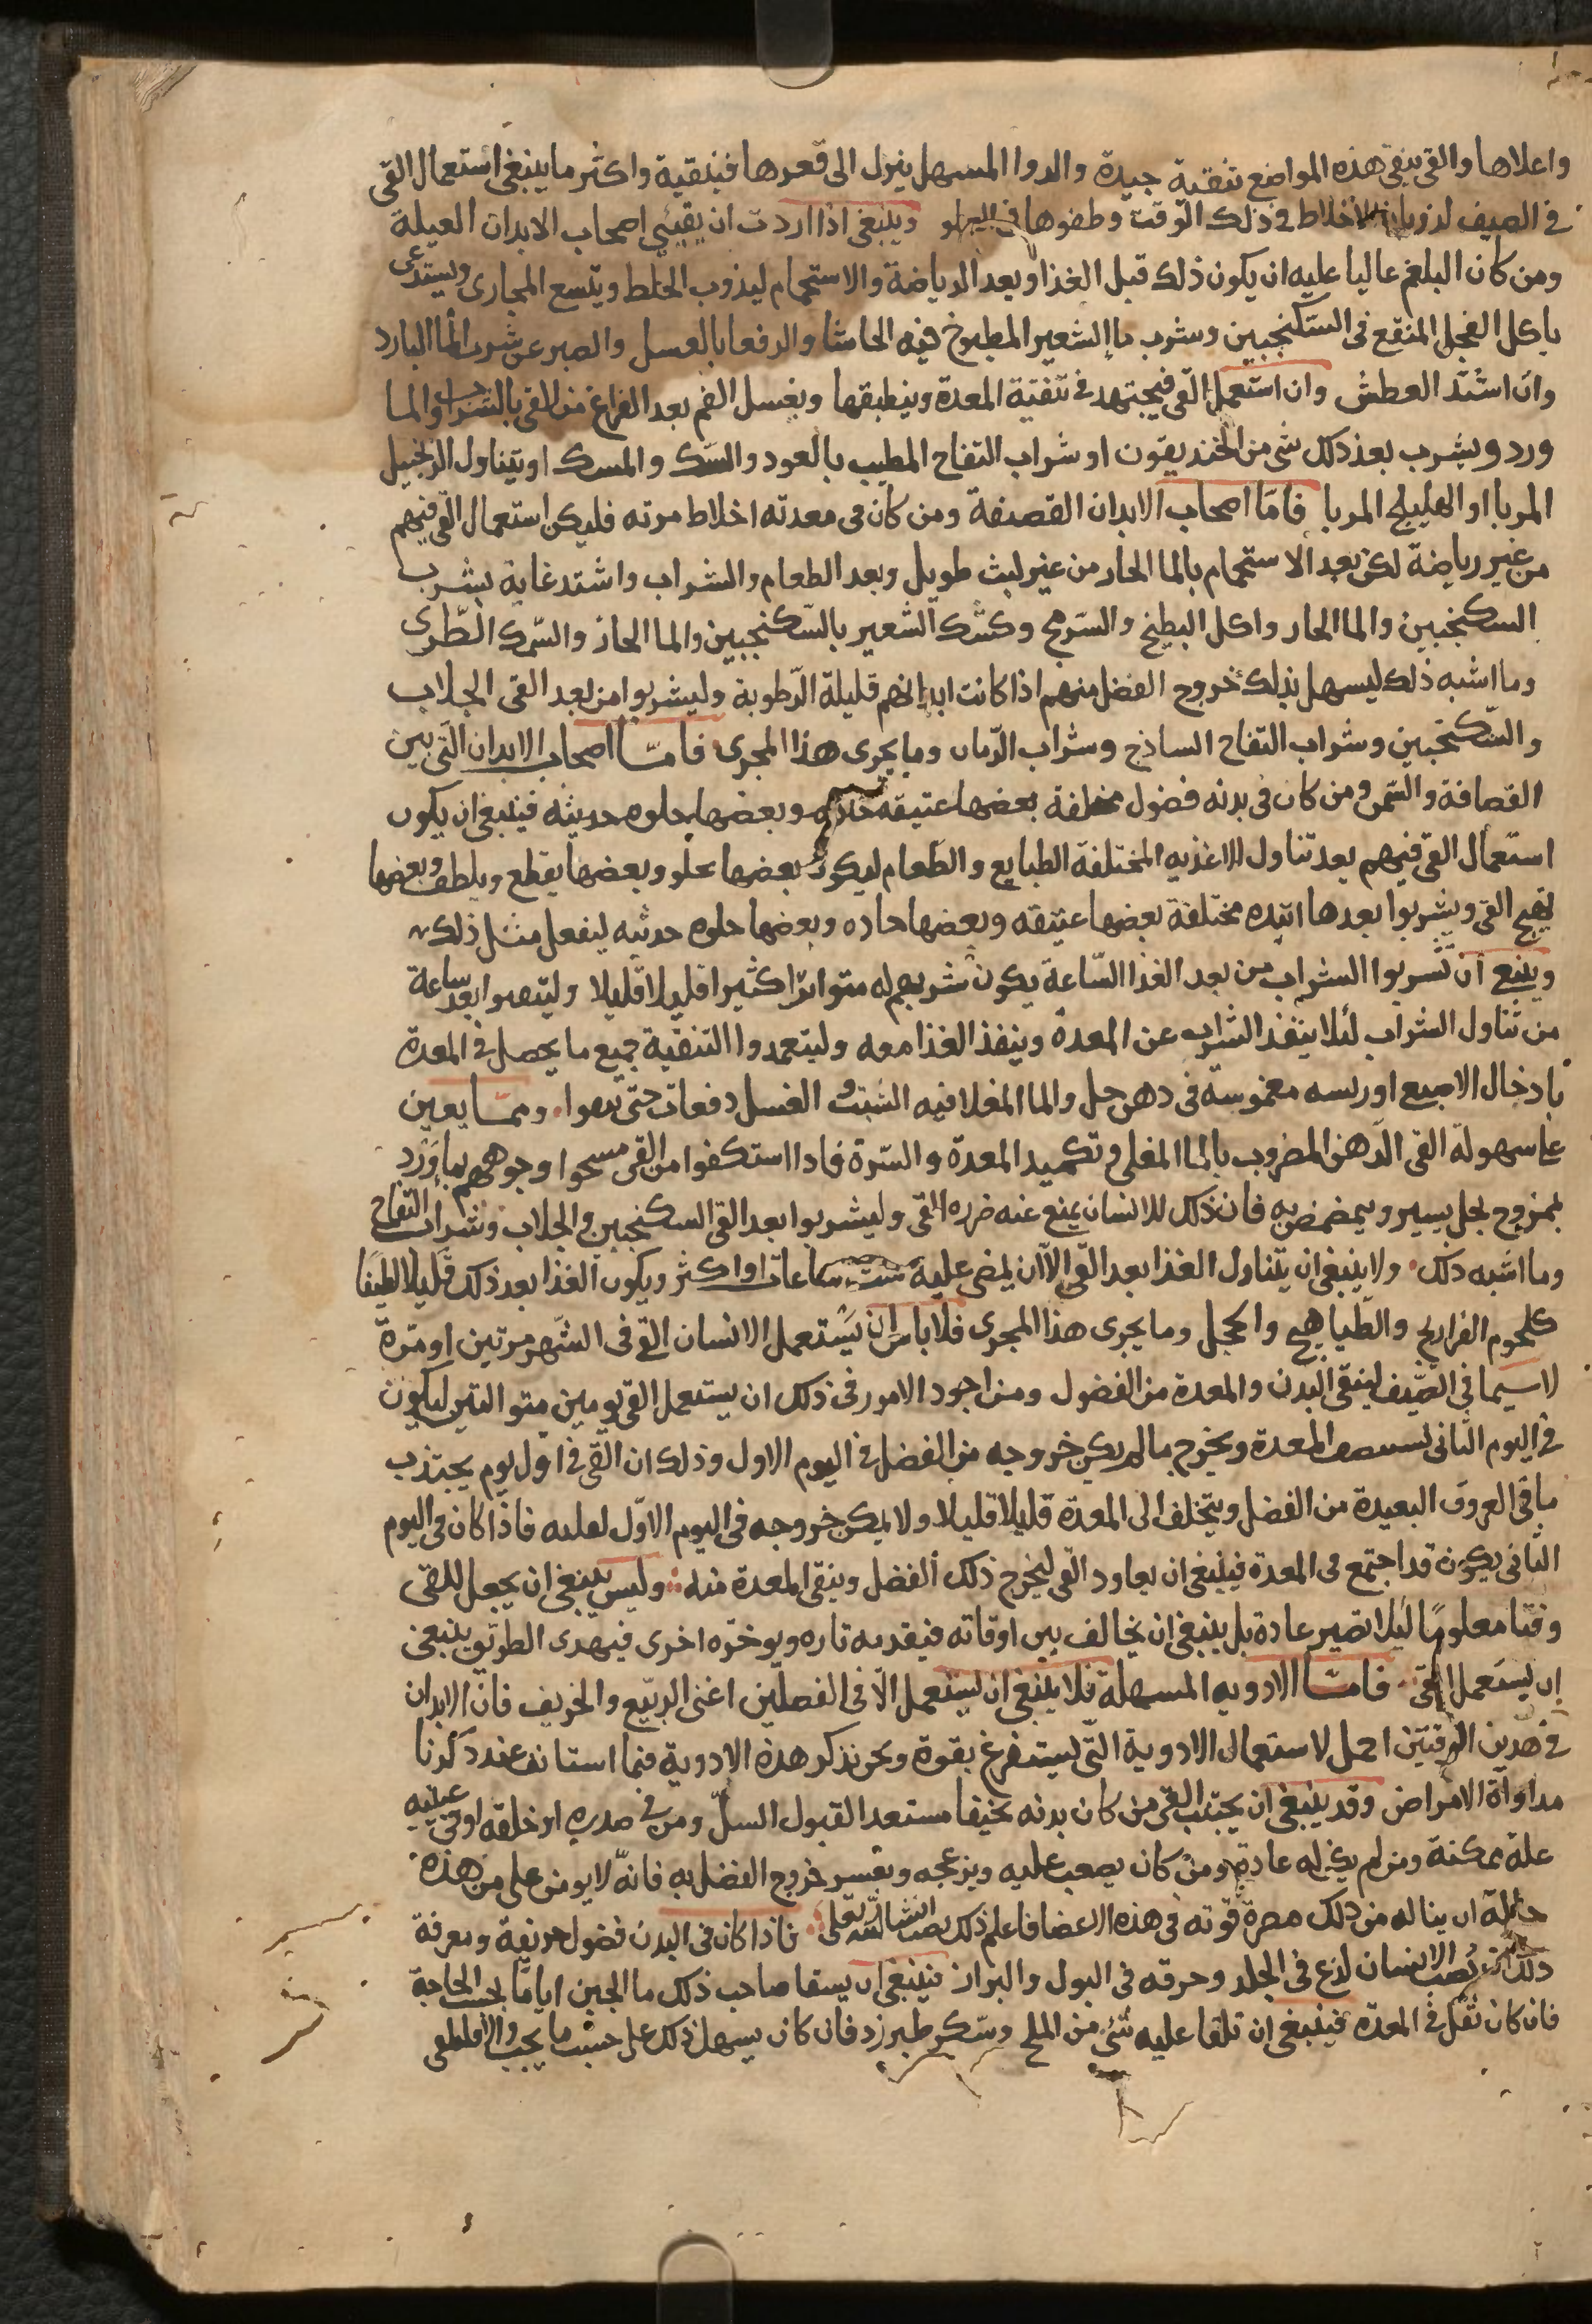 واعلاها والقى ينقى هذه المواضع تنقية جيدة والدوا المسهل ينزل الى قعرها فينقية واكثر ما ينبغى استعمال القى
فى الصيف لذوبان الاخلاط فى ذلك الوقت وطفوها وينبغى اذا اردت ان يقيئى اصحاب الابدان العبلة
ومن كان البلغم عاليا عليه ان يكون ذلك قبل الغذا وبعد الرياضة والاستحمام ليذوب الخلط ويتسع المجارى ويستدعى
باكل الفجل المنقع فى السكنجبين وشرب ما الشعير المطبوخ فيه الحاشا والدفعا بالعسل والصبر عن شرب الما البارد
وان اشتد العطش وان استعمل القى فيجتهد فى تنقية المعدة وينطبقها وبغسل الفم بعد الفراغ من القى بالشراب والما
ورد ويشرب بعد ذلك شى من الخنديقون او شراب التفاح المطيب بالعود والسك والمسك او يتناول الزنجبيل
المربا او الهليلج المربا فامّا اصحاب الابدان القصفة ومن كان فى معدته اخلاط مرته فليكن استعمال القى فيهم
من غير رياضة لكن بعد الاستحمام بالما الحار من غير لبث طويل وبعد الطعام والشراب واشتد غاية بشرب
السكنجبين والما الحار واكل البطيخ والسرمج وكشك الشعير بالسكنجبين والما الحار والسمك الطرى
وما اشبه ذلك ليسهل بذلك خروج الفضل منهم اذا كانت ابدانهم قليلة الرطوبة وليشربوا من بعد القى الجلاب
والسكنجبين وشراب التفاح الساذج وشراب الرمان وما يجرى هذا المجرى فامّا اصحاب الابدان التى بين
القصافة والسمن ومن كان فى بدنه فضول مختلفة بعضها عتيقه وبعضها حلوه حديثه فينبغى ان يكون
استعمال القى فيهم بعد تناول الاغذيه المختلفة الطبايع والطعام ليكون بعضها يحلو وبعضها يقطع ويلطف وبعضها
يهيج القى ويشربوا بعدها انبذه مختلفة بعضها عتيقه وبعضها حاده وبعضها حلوه حدثيه ليفعل مثل ذلك
وينبغ ان تشربوا الشراب من بعد الغذا الساعة يكون شربهم له متواترا كثيرا قليلا قليلا وليتقيوا بعد ساعة
من تناول الشراب لئلا ينفذ الشراب عن المعدة وينفذ الغذا معه وليتعمدوا التنقية جميع ما يحصل فى المعدة
بادخال الاصبع او ريسه مغموسة فى دهن حل والما المغلا فيه الشبت و الغسل دفعات حتى ومما يعين
على سهولة القى الدهن المضروب بالما المغلى وتكميد المعدة والسرة فاذا استكفوا من القى مسحوا وجوههم بما ورد
ممزوج بخل يسير ويمضمض به فان ذلك للانسان يمنع عنه ضرر القى وليشربوا بعد القى السكنجبين والجلاب وشراب التفاح
وما اشبه ذلك ولا ينبغى ان يتناول الغذا بعد القى الا ان يمضى عليه ست ساعات او اكثر ويكون الغذا بعد ذلك قليلا لطيفا
كلحوم الفراريج والطياهيج والحجل وما يجرى هذا المجرى فلا باس ان يستعمل الانسان القى فى الشهر مرتين او مرة
لا سيما فى الصيف لينقى البدن والمعدة من الفضول ومن اجود الامور فى ذلك ان يستعمل القى يومين متواليين ليكون
فى اليوم الثانى المعدة ويخرج ما لم يكن خروجه من الفضل فى اليوم الاول وذلك ان القى فى اول يوم يجتذب
ما فى العروق البعيدة من الفضل ويتخلف الى المعدة قليلا قليلا ولا يمكن خروجه فى اليوم الاول لعليه فاذا كان فى اليوم
الثانى يكون قد اجتمع فى المعدة فينبغى ان يعاود القى ليخرج ذلك الفضل وينقى المعدة منه وليس ينبغى ان يجعل للقى
وقتا معلوما ليلا تصير عادة بل ينبغى ان يخالف بين اوقاته فيقدمه تاره ويوخره اخرى فبهذى الطريق ينبغى
ان يستعمل القى فامّا الادويه المسهلة فلا ينبغى ان يستعمل الا فى الفصلين اعنى الربيع والخريف فان الابدان
فى هذين الوقتين احمل لاستعمال الادوية التى يستفرغ بقوة ونحن نذكر هذه الادوية فيما استانف عند ذكرنا
مداواة الامراض وقد ينبغى ان يجتنب القى من كان بدنه نحيفا مستعد القبول السل ومن فى صدره او حلقه او فى عينيه
علة ممكنة ومن لم يكن له عادة ومن كان يصعب عليه ويزعجه وبعسر خروج الفضل به فانه لا يومن على من هذه
حاله ان يناله من ذلك مضرة قوته فى هذه الاعضا فاعلم ذلك ان شا الله تعلى فاذا كان فى البدن فضول حريفة ومعرفة
ذلك ان يصب الانسان لذع فى الجلد وحرقه فى البول والبراز فينبغى ان يسقا صاحب ذلك ما الجبن اياما بحسب الحاجة
فان كان ثقل فى المعدة فينبغى ان تلقا عليه شى من الملح وسكر طبرزد فان كان يسهل ذلك على حسب ما يجب والا فليلقى